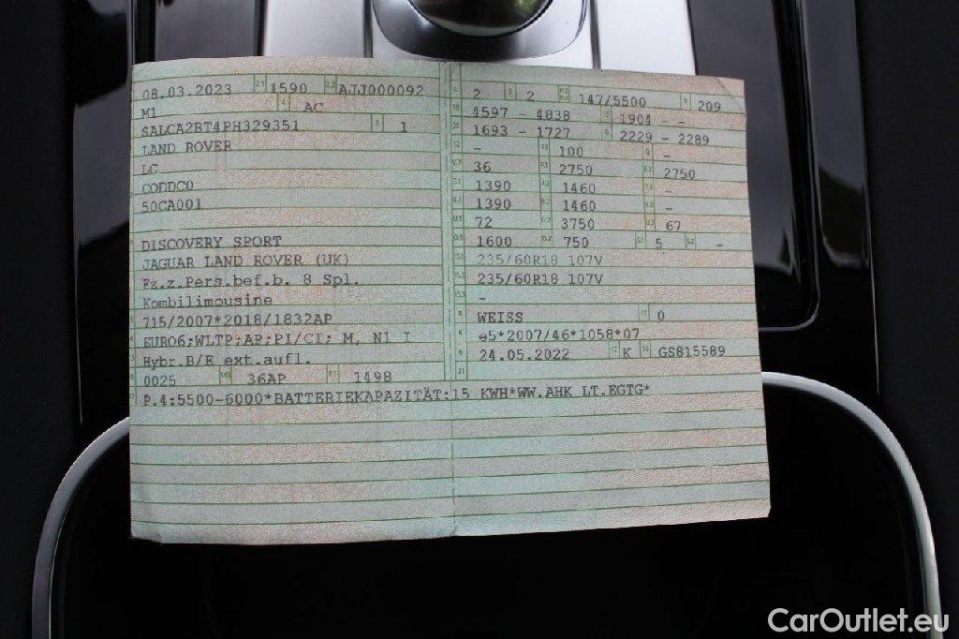 08.03.2023 1590 AJJ000092
M1 AC
SALCA2BT4PH329351 1
LAND ROVER
LC
CODDC0
50CA001
DISCOVERY SPORT
JAGUAR LAND ROVER (UK)
Fz.z.Pers.bef.b. 8 Spl.
Kombilimousine
715/2007*2018/1832AP
EURO6;WLTP;AP;PI/CI; M, N1 I
Hybr.B/E ext.aufl.
0025 36AP 1498
2 2 147/5500 209
4597 - 4838 1904 - -
1693 - 1727 2229 - 2289
- 100 -
36 2750 2750
1390 1460 -
1390 1460 -
72 3750 67
1600 750 5 -
235/60R18 107V
235/60R18 107V
-
WEISS 0
e5*2007/46*1058*07
24.05.2022 K GS815589
P.4:5500-6000*BATTERIEKAPAZITÄT:15 KWH*WW.AHK LT.EGTG*
CarOutlet.eu